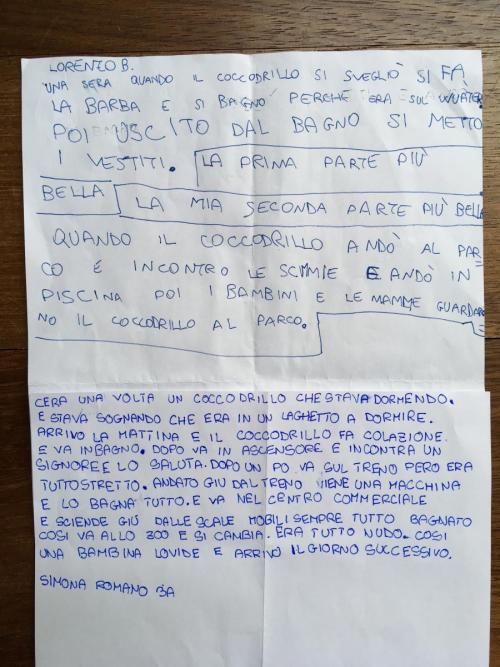 LORENZO B.
UNA SERA QUANDO IL COCCODRILLO SI SVEGLIÒ SI FÀ
LA BARBA E SI BAGNÒ PERCHE ERA SUL WATER
POI USCITO DAL BAGNO SI METTO
I VESTITI. LA PRIMA PARTE PIÙ
BELLA LA MIA SECONDA PARTE PIÙ BELL
QUANDO IL COCCODRILLO ANDÒ AL PAR
CO E INCONTRO LE SCIMMIE E ANDÒ IN
PISCINA POI I BAMBINI E LE MAMME GUARDARO
NO IL COCCODRILLO AL PARCO.
CERA UNA VOLTA UN COCCODRILLO CHE STAVA DORMENDO.
E STAVA SOGNANDO CHE ERA IN UN LAGHETTO A DORMIRE.
ARRIVO LA MATTINA E IL COCCODRILLO FA COLAZIONE.
E VA IN BAGNO. DOPO VA IN ASCENSORE E INCONTRA UN
SIGNORE E LO SALUTA. DOPO UN PO VA SUL TRENO PERO ERA
TUTTO STRETTO. ANDATO GIU DAL TRENO VIENE UNA MACCHINA
E LO BAGNA TUTTO. E VA NEL CENTRO COMMERCIALE
E SCIENDE GIÙ DALLE SCALE MOBILI SEMPRE TUTTO BAGNATO
COSI VA ALLO ZOO E SI CAMBIA. ERA TUTTO NUDO. COSI
UNA BAMBINA LOVIDE E ARRIVO IL GIORNO SUCCESSIVO.
SIMONA ROMANO 3A